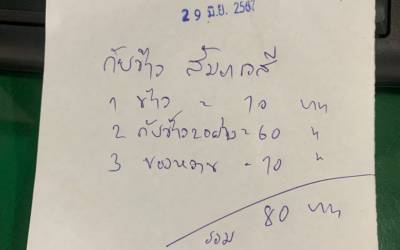 29 มิ.ย. 2567
กับข้าว สัมภเวสี
1 ข้าว = 10 บาท
2 กับข้าว 2 อย่าง = 60 "
3 ของหวาน - 10 "
รวม 80 บาท